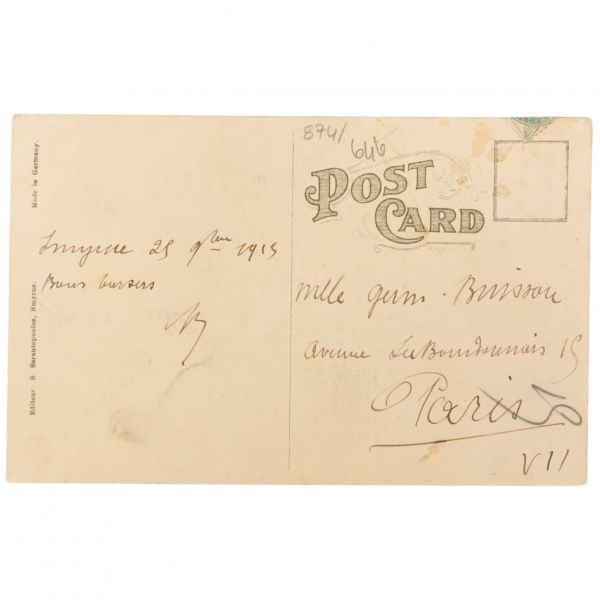 874/
646
POST
CARD
Made in Germany.
Editeur: S. Sarantopoulos, Smyrne.
Smyrne 25 9bre 1913
Bons baisers
Mlle Germ. Buisson
Avenue La Bourdonnais 15
Paris
VII